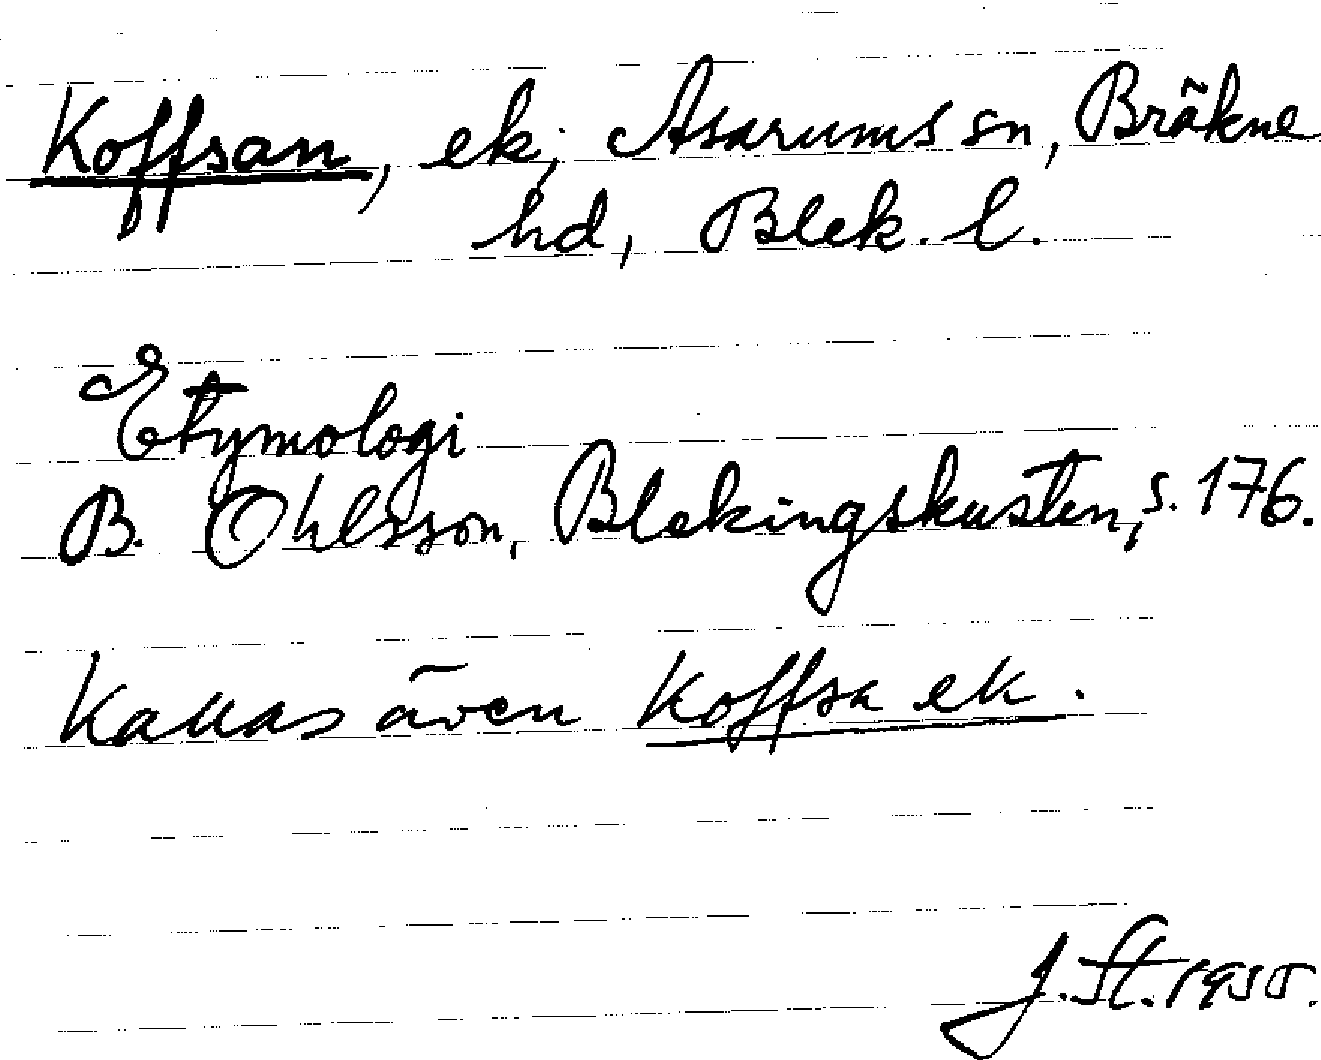 Koffsan, ek, Asarums sn, Bräkne
hd, Blek. l.
Etymologi
B. Ohlsson, Blekingskusten, s. 176.
Kallas även Koffsa ek.
J. St. 1955.